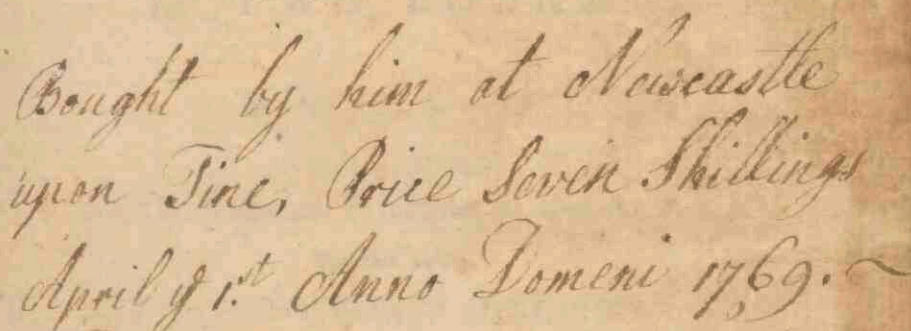 Bought by him at Newcastle
upon Tine, Price Seven Shillings
April ye 1st. Anno Domeni 1769. ~